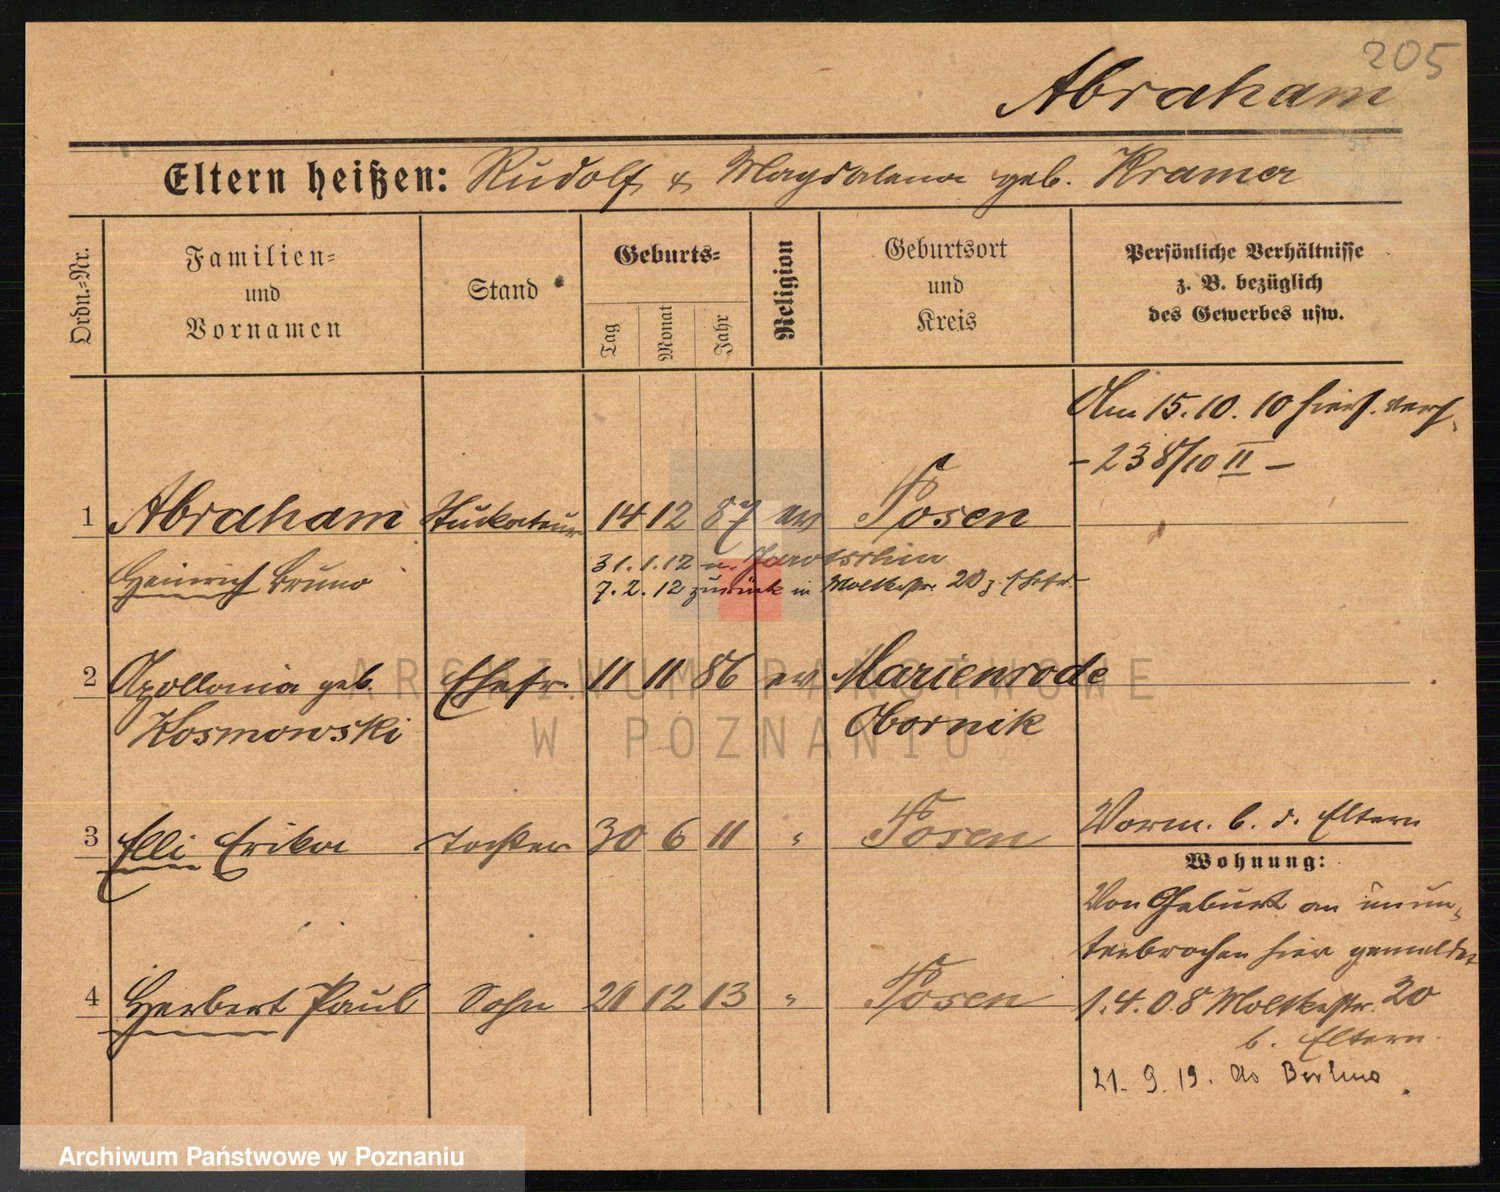 205
Abraham
Eltern heißen: Rudolf & Magdalena geb. Kramer
Ordn.-Nr.
Familien-
und
Vornamen
Stand
Geburts-
Tag
Monat
Jahr
Religion
Geburtsort
und
Kreis
Persönliche Verhältnisse
z. B. bezüglich
des Gewerbes usw.
Am 15.10.10 hier. verh.
- 238/10 II -
1 Abraham Stukateur 14 12 87 ev Posen
Heinrich Bruno
31.1.12 n. Jarotschin
7.2.12 zurück in Moltkestr. 20
2 Apollonia geb. Ehefr. 11 11 86 ev Marienrode
Kosmowski Obornik
3 Elli Erika Tochter 30 6 11 " Posen
Vorm. b. d. Eltern
Wohnung:
Von Geburt an unun-
terbrochen hier gemeldet
4 Herbert Paul Sohn 20 12 13 " Posen
1.4.08 Moltkestr. 20
b. Eltern.
21.9.19. do Berlina.
ARCHIWUM PAŃSTWOWE
W POZNANIU
Archiwum Państwowe w Poznaniu